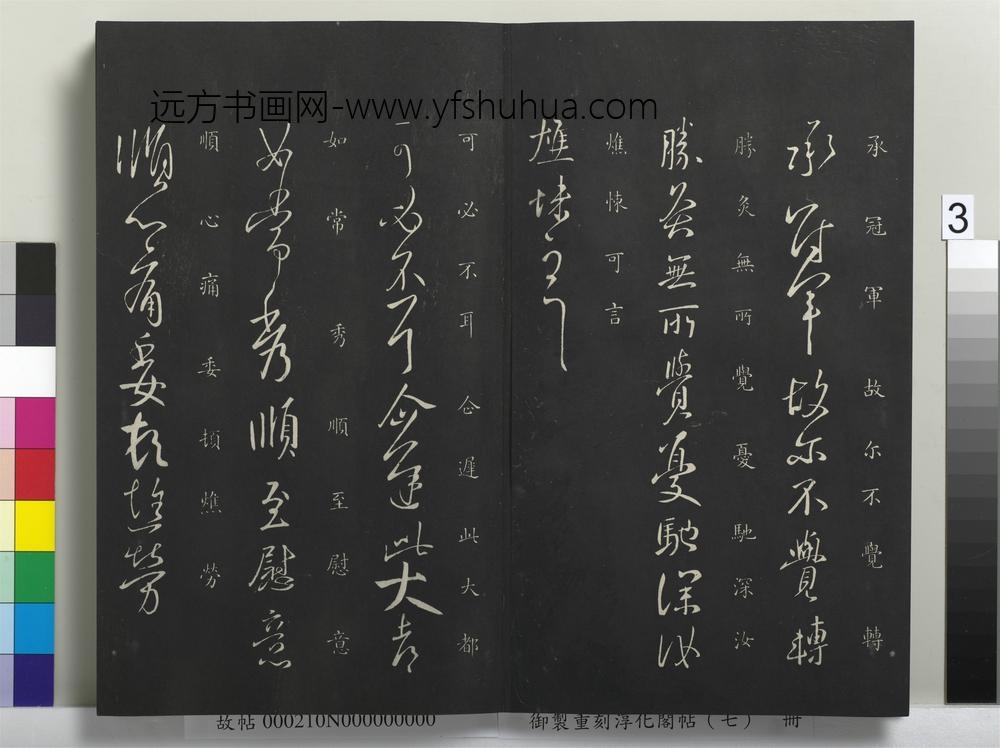 远方书画网-www.yfshuhua.com
承冠軍故尔不覺轉
承冠軍故尔不覺轉
勝灸無所覺憂馳深汝
勝灸無所覺憂馳深汝
燋悚可言
燋悚可言
可必不耳仚遲此大都
可必不耳仚遲此大都
如常秀順至慰意
如常秀順至慰意
順心痛委頓燋勞
順心痛委頓燋勞
3
故帖 000210N000000000
御製重刻淳化閣帖（七） 冊